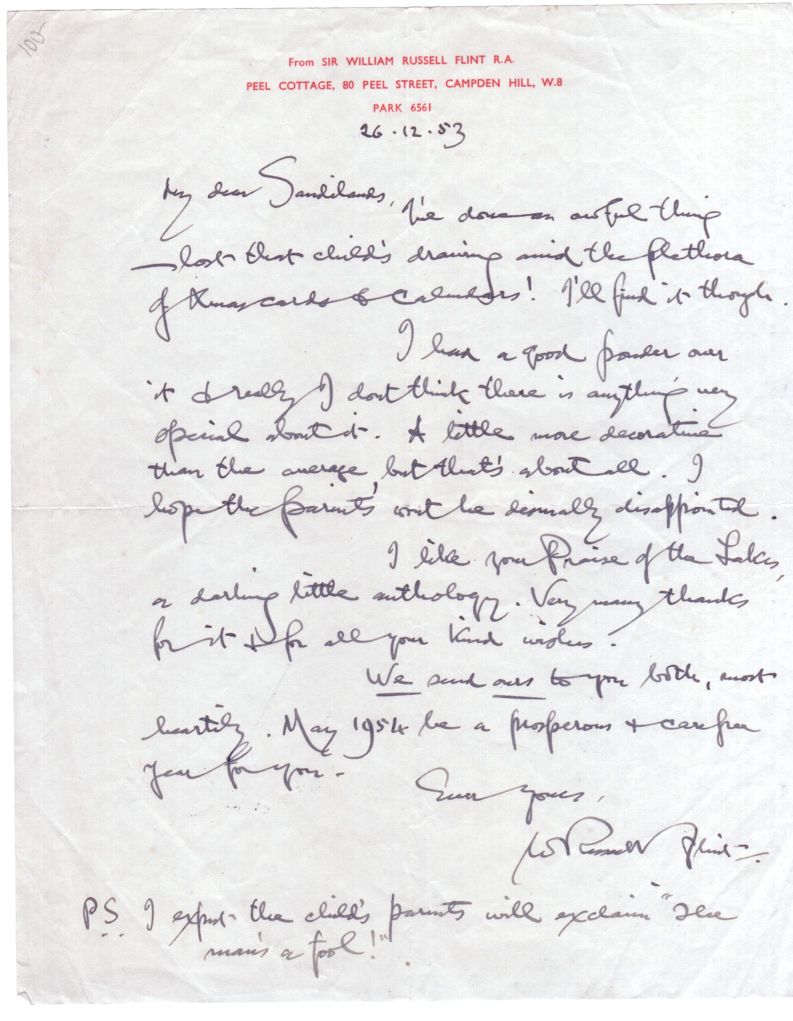 100-
From SIR WILLIAM RUSSELL FLINT R.A.
PEEL COTTAGE, 80 PEEL STREET, CAMPDEN HILL, W.8
PARK 6561
26.12.53
My dear Sandilands,
I've done an awful thing
—lost that child's drawing amid the plethora
of Xmas cards & calendars! I'll find it though.
I had a good ponder over
it & really I dont think there is anything very
special about it. A little more decorative
than the average, but that's about all. I
hope the parents wont be dismally disappointed.
I like your Praise of the Lakes,
a darling little anthology. Very many thanks
for it & for all your kind wishes.
We send ours to you both, most
heartily. May 1954 be a prosperous & carefree
year for you.
Ever yours,
W Russell Flint.
PS I expect the child's parents will exclaim "The
man's a fool!"